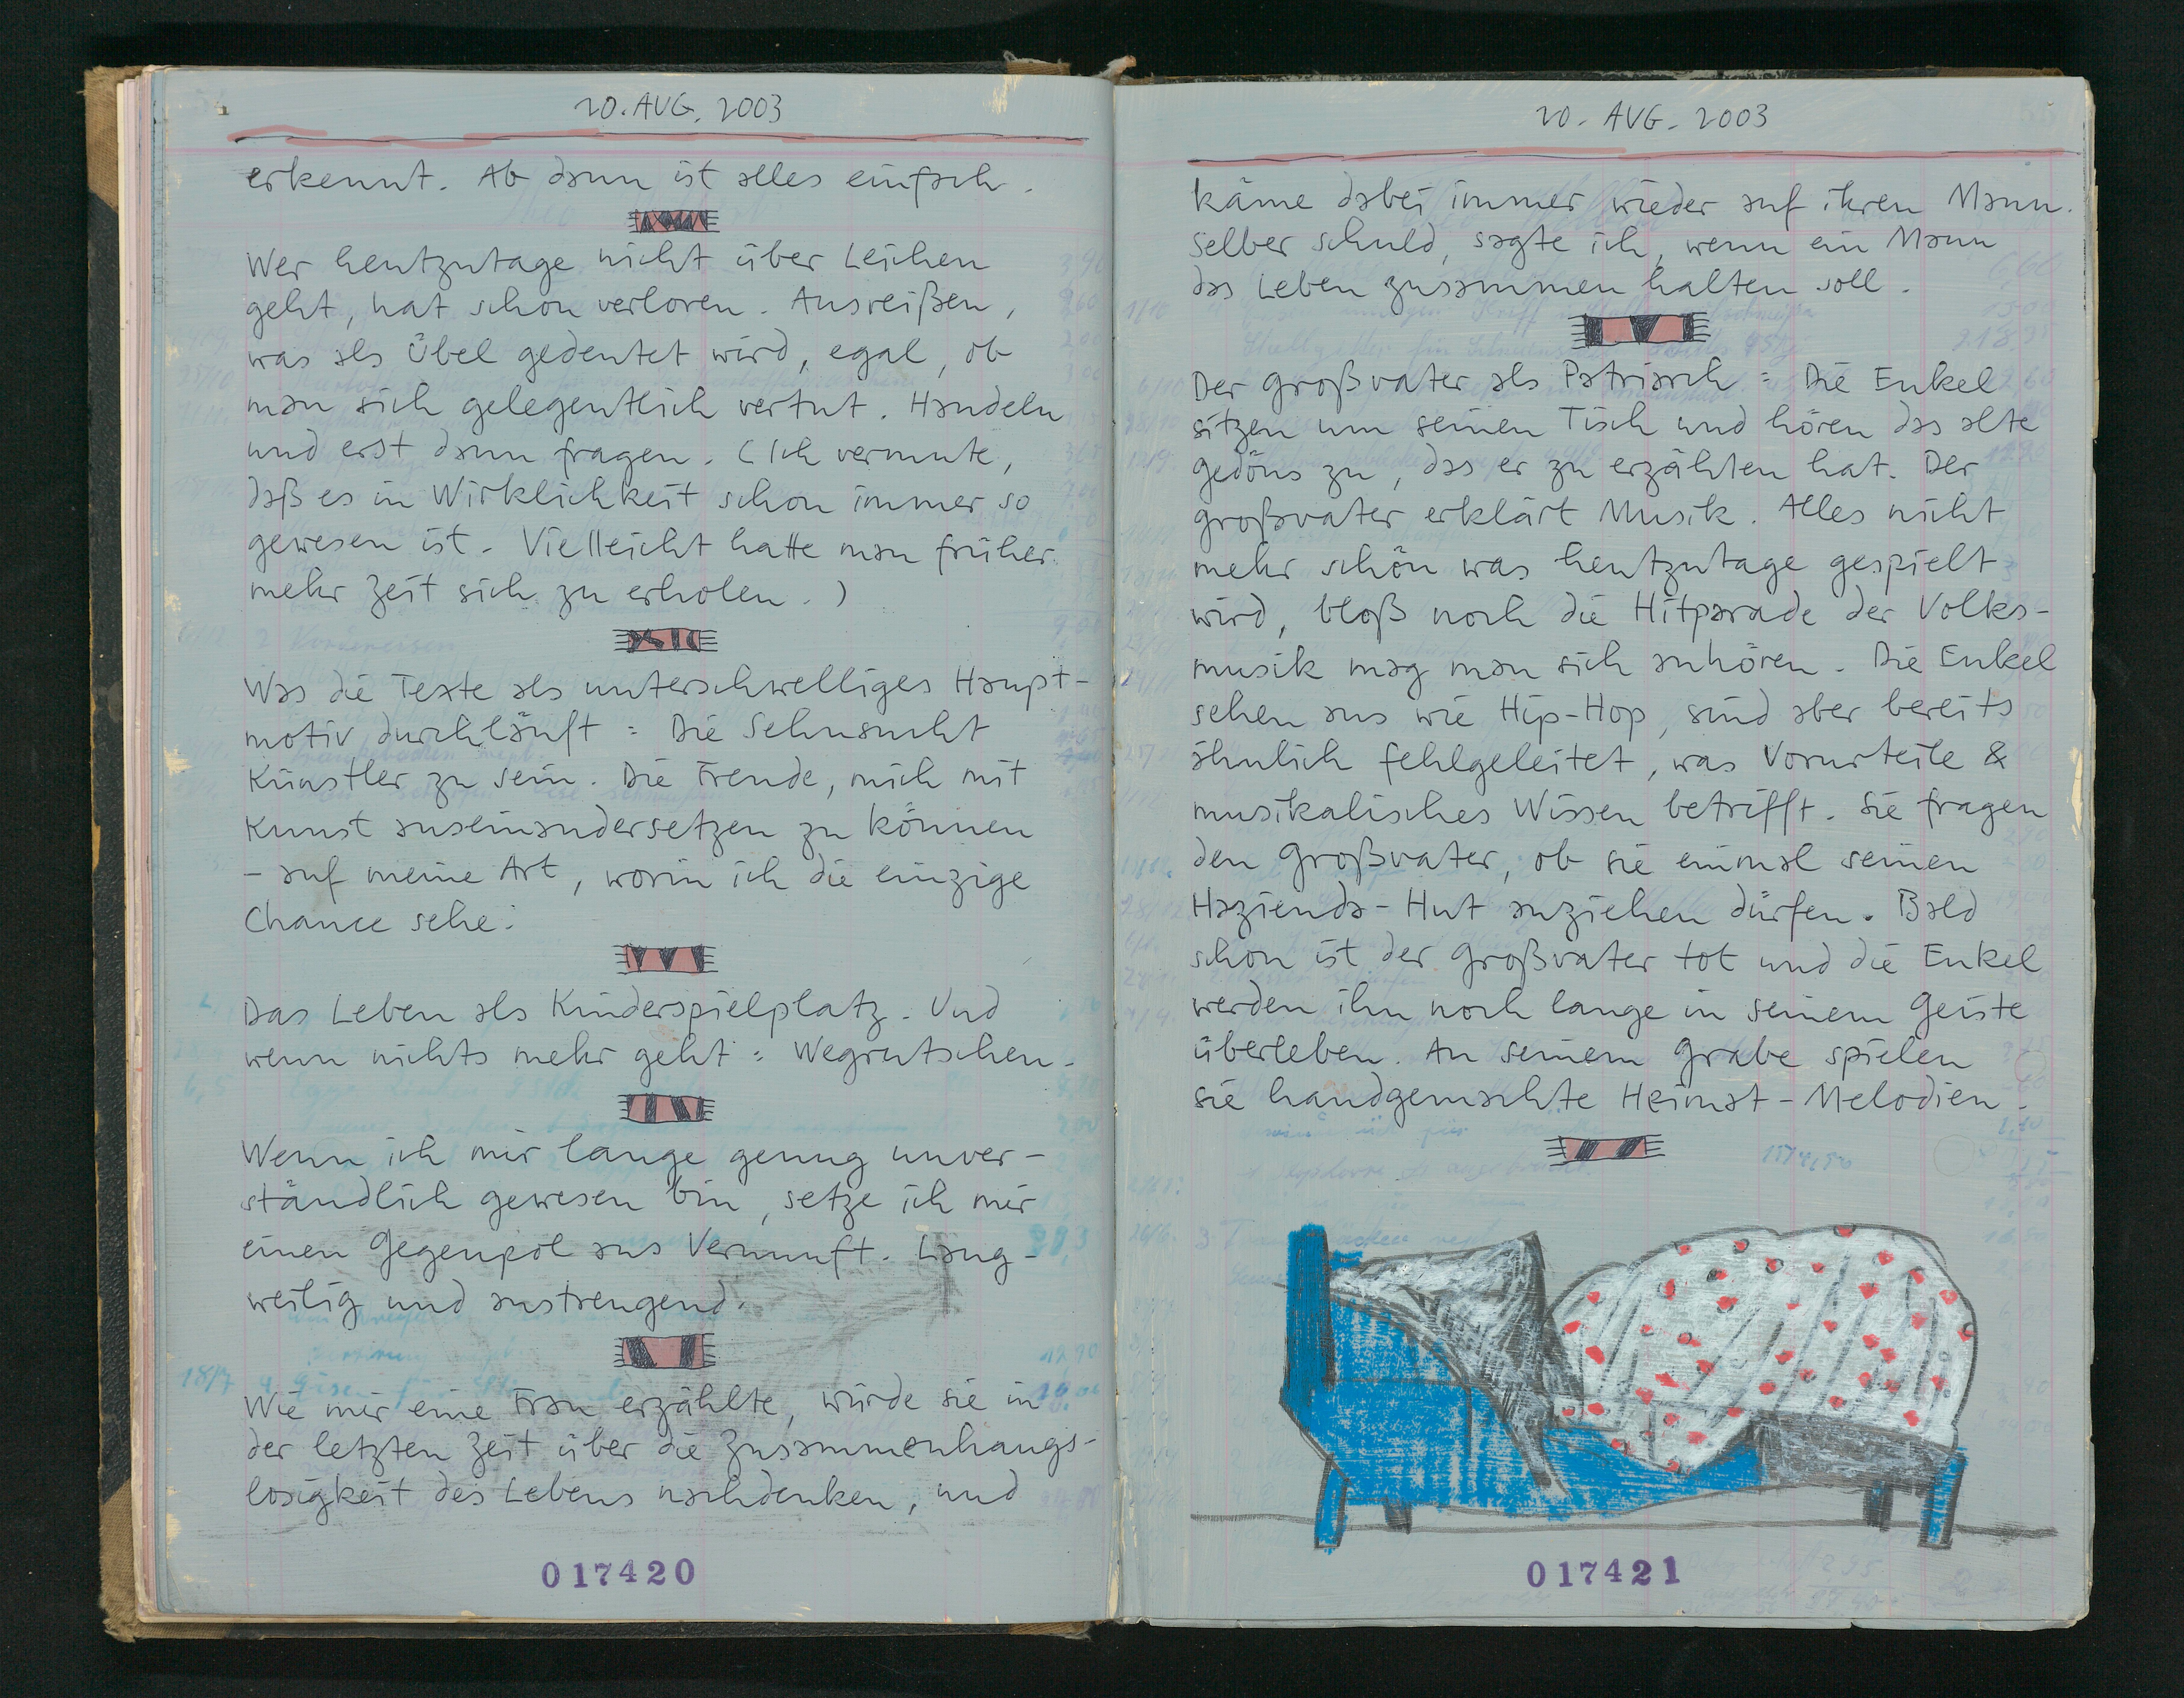 20. AUG. 2003
erkennt. Ab dann ist alles einfach.
Wer heutzutage nicht über Leichen
geht, hat schon verloren. Ausreißen,
was als Übel gedeutet wird, egal, ob
man sich gelegentlich vertut. Handeln
und erst dann fragen. (Ich vermute,
daß es in Wirklichkeit schon immer so
gewesen ist. Vielleicht hatte man früher
mehr Zeit sich zu erholen.)
Was die Texte als unterschwelliges Haupt-
motiv durchläuft: Die Sehnsucht
Künstler zu sein. Die Freude, mich mit
Kunst auseinandersetzen zu können
- auf meine Art, worin ich die einzige
Chance sehe.
Das Leben als Kinderspielplatz. Und
wenn nichts mehr geht: Wegrutschen.
Wenn ich mir lange genug unver-
ständlich gewesen bin, setze ich mir
einen Gegenpol aus Vernunft. Lang-
weilig und anstrengend.
Wie mir eine Frau erzählte, würde sie in
der letzten Zeit über die Zusammenhangs-
losigkeit des Lebens nachdenken, und
017420
20. AUG. 2003
käme dabei immer wieder auf ihren Mann.
Selber schuld, sagte ich, wenn ein Mann
das Leben zusammen halten soll.
Der Großvater als Patriarch: Die Enkel
sitzen um seinen Tisch und hören das alte
Gedöns zu, das er zu erzählen hat. Der
Großvater erklärt Musik. Alles nicht
mehr schön was heutzutage gespielt
wird, bloß noch die Hitparade der Volks-
musik mag man sich anhören. Die Enkel
sehen aus wie Hip-Hop, sind aber bereits
ähnlich fehlgeleitet, was Vorurteile &
musikalisches Wissen betrifft. Sie fragen
den Großvater, ob sie einmal seinen
Hazienda-Hut anziehen dürfen. Bald
schon ist der Großvater tot und die Enkel
werden ihn noch lange in seinem Geiste
überleben. An seinem Grabe spielen
sie handgemachte Heimat-Melodien.
017421